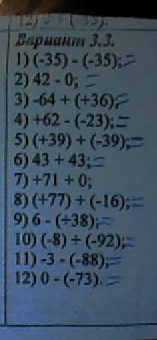 Вариант 3.3.
1) (-35) - (-35); =
2) 42 - 0; =
3) -64 + (+36); =
4) +62 - (-23); =
5) (+39) + (-39); =
6) 43 + 43; =
7) +71 + 0;
8) (+77) + (-16); =
9) 6 - (+38); =
10) (-8) + (-92); =
11) -3 - (-88); =
12) 0 - (-73). =